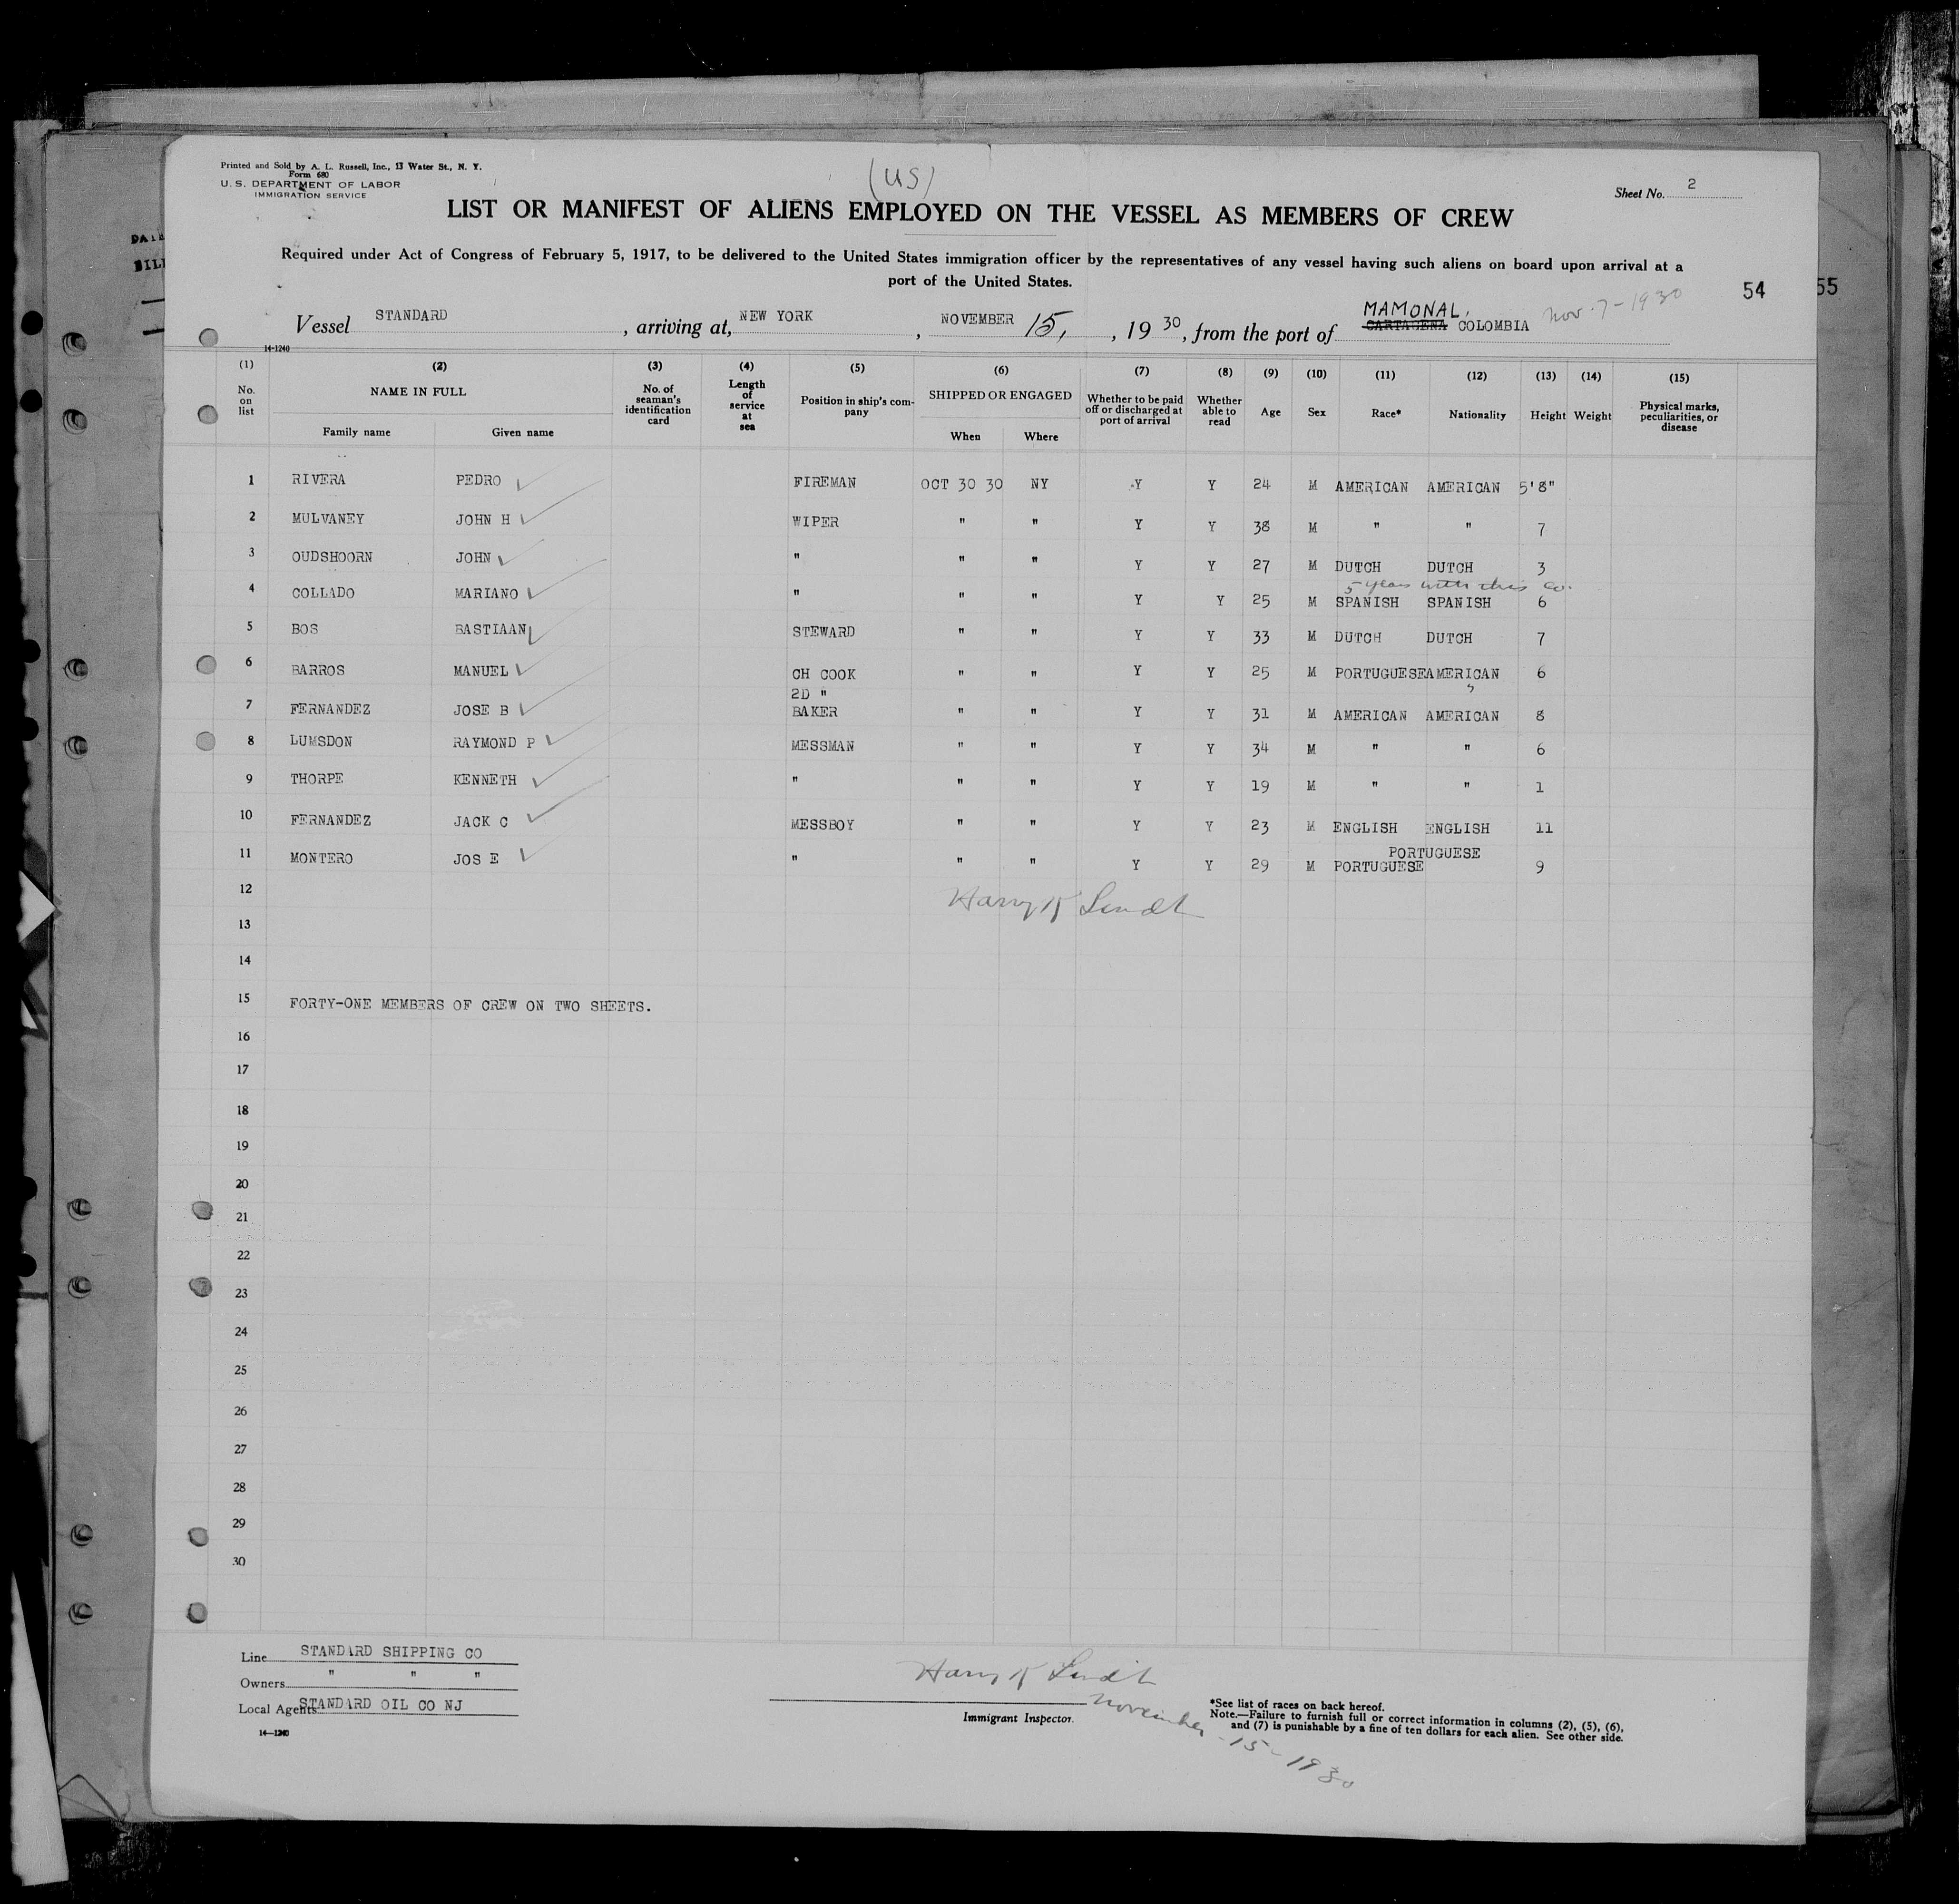 Printed and Sold by A. L. Russell, Inc., 13 Water St., N. Y.
Form 680
U. S. DEPARTMENT OF LABOR
IMMIGRATION SERVICE
(US)
Sheet No. 2
LIST OR MANIFEST OF ALIENS EMPLOYED ON THE VESSEL AS MEMBERS OF CREW
Required under Act of Congress of February 5, 1917, to be delivered to the United States immigration officer by the representatives of any vessel having such aliens on board upon arrival at a
port of the United States.
54 55
MAMONAL, Nov. 7-1930
Vessel STANDARD, arriving at, NEW YORK, NOVEMBER 15,, 19 30, from the port of CARTAGENA COLOMBIA
14-1240
(1) (2) (3) (4) (5) (6) (7) (8) (9) (10) (11) (12) (13) (14) (15)
No. on list NAME IN FULL Family name Given name No. of seaman's identification card Length of service at sea Position in ship's company SHIPPED OR ENGAGED When Where Whether to be paid off or discharged at port of arrival Whether able to read Age Sex Race* Nationality Height Weight Physical marks, peculiarities, or disease
1 RIVERA PEDRO FIREMAN OCT 30 30 NY Y Y 24 M AMERICAN AMERICAN 5'8"
2 MULVANEY JOHN H WIPER " " Y Y 38 M " " 7
3 OUDSHOORN JOHN " " " Y Y 27 M DUTCH DUTCH 3
5 years with this Co.
4 COLLADO MARIANO " " " Y Y 25 M SPANISH SPANISH 6
5 BOS BASTIAAN STEWARD " " Y Y 33 M DUTCH DUTCH 7
6 BARROS MANUEL CH COOK " " Y Y 25 M PORTUGUESE AMERICAN 6
2D "
7 FERNANDEZ JOSE B BAKER " " Y Y 31 M AMERICAN AMERICAN 8
8 LUMSDON RAYMOND P MESSMAN " " Y Y 34 M " " 6
9 THORPE KENNETH " " " Y Y 19 M " " 1
10 FERNANDEZ JACK C MESSBOY " " Y Y 23 M ENGLISH ENGLISH 11
PORTUGUESE
11 MONTERO JOS E " " " Y Y 29 M PORTUGUESE 9
12
Harry K
13
14
15 FORTY-ONE MEMBERS OF CREW ON TWO SHEETS.
16
17
18
19
20
21
22
23
24
25
26
27
28
29
30
Line STANDARD SHIPPING CO
Owners " " "
Local Agents STANDARD OIL CO NJ
14-1240
Harry K
Immigrant Inspector.
November-15-1930
*See list of races on back hereof.
Note.—Failure to furnish full or correct information in columns (2), (5), (6),
and (7) is punishable by a fine of ten dollars for each alien. See other side.